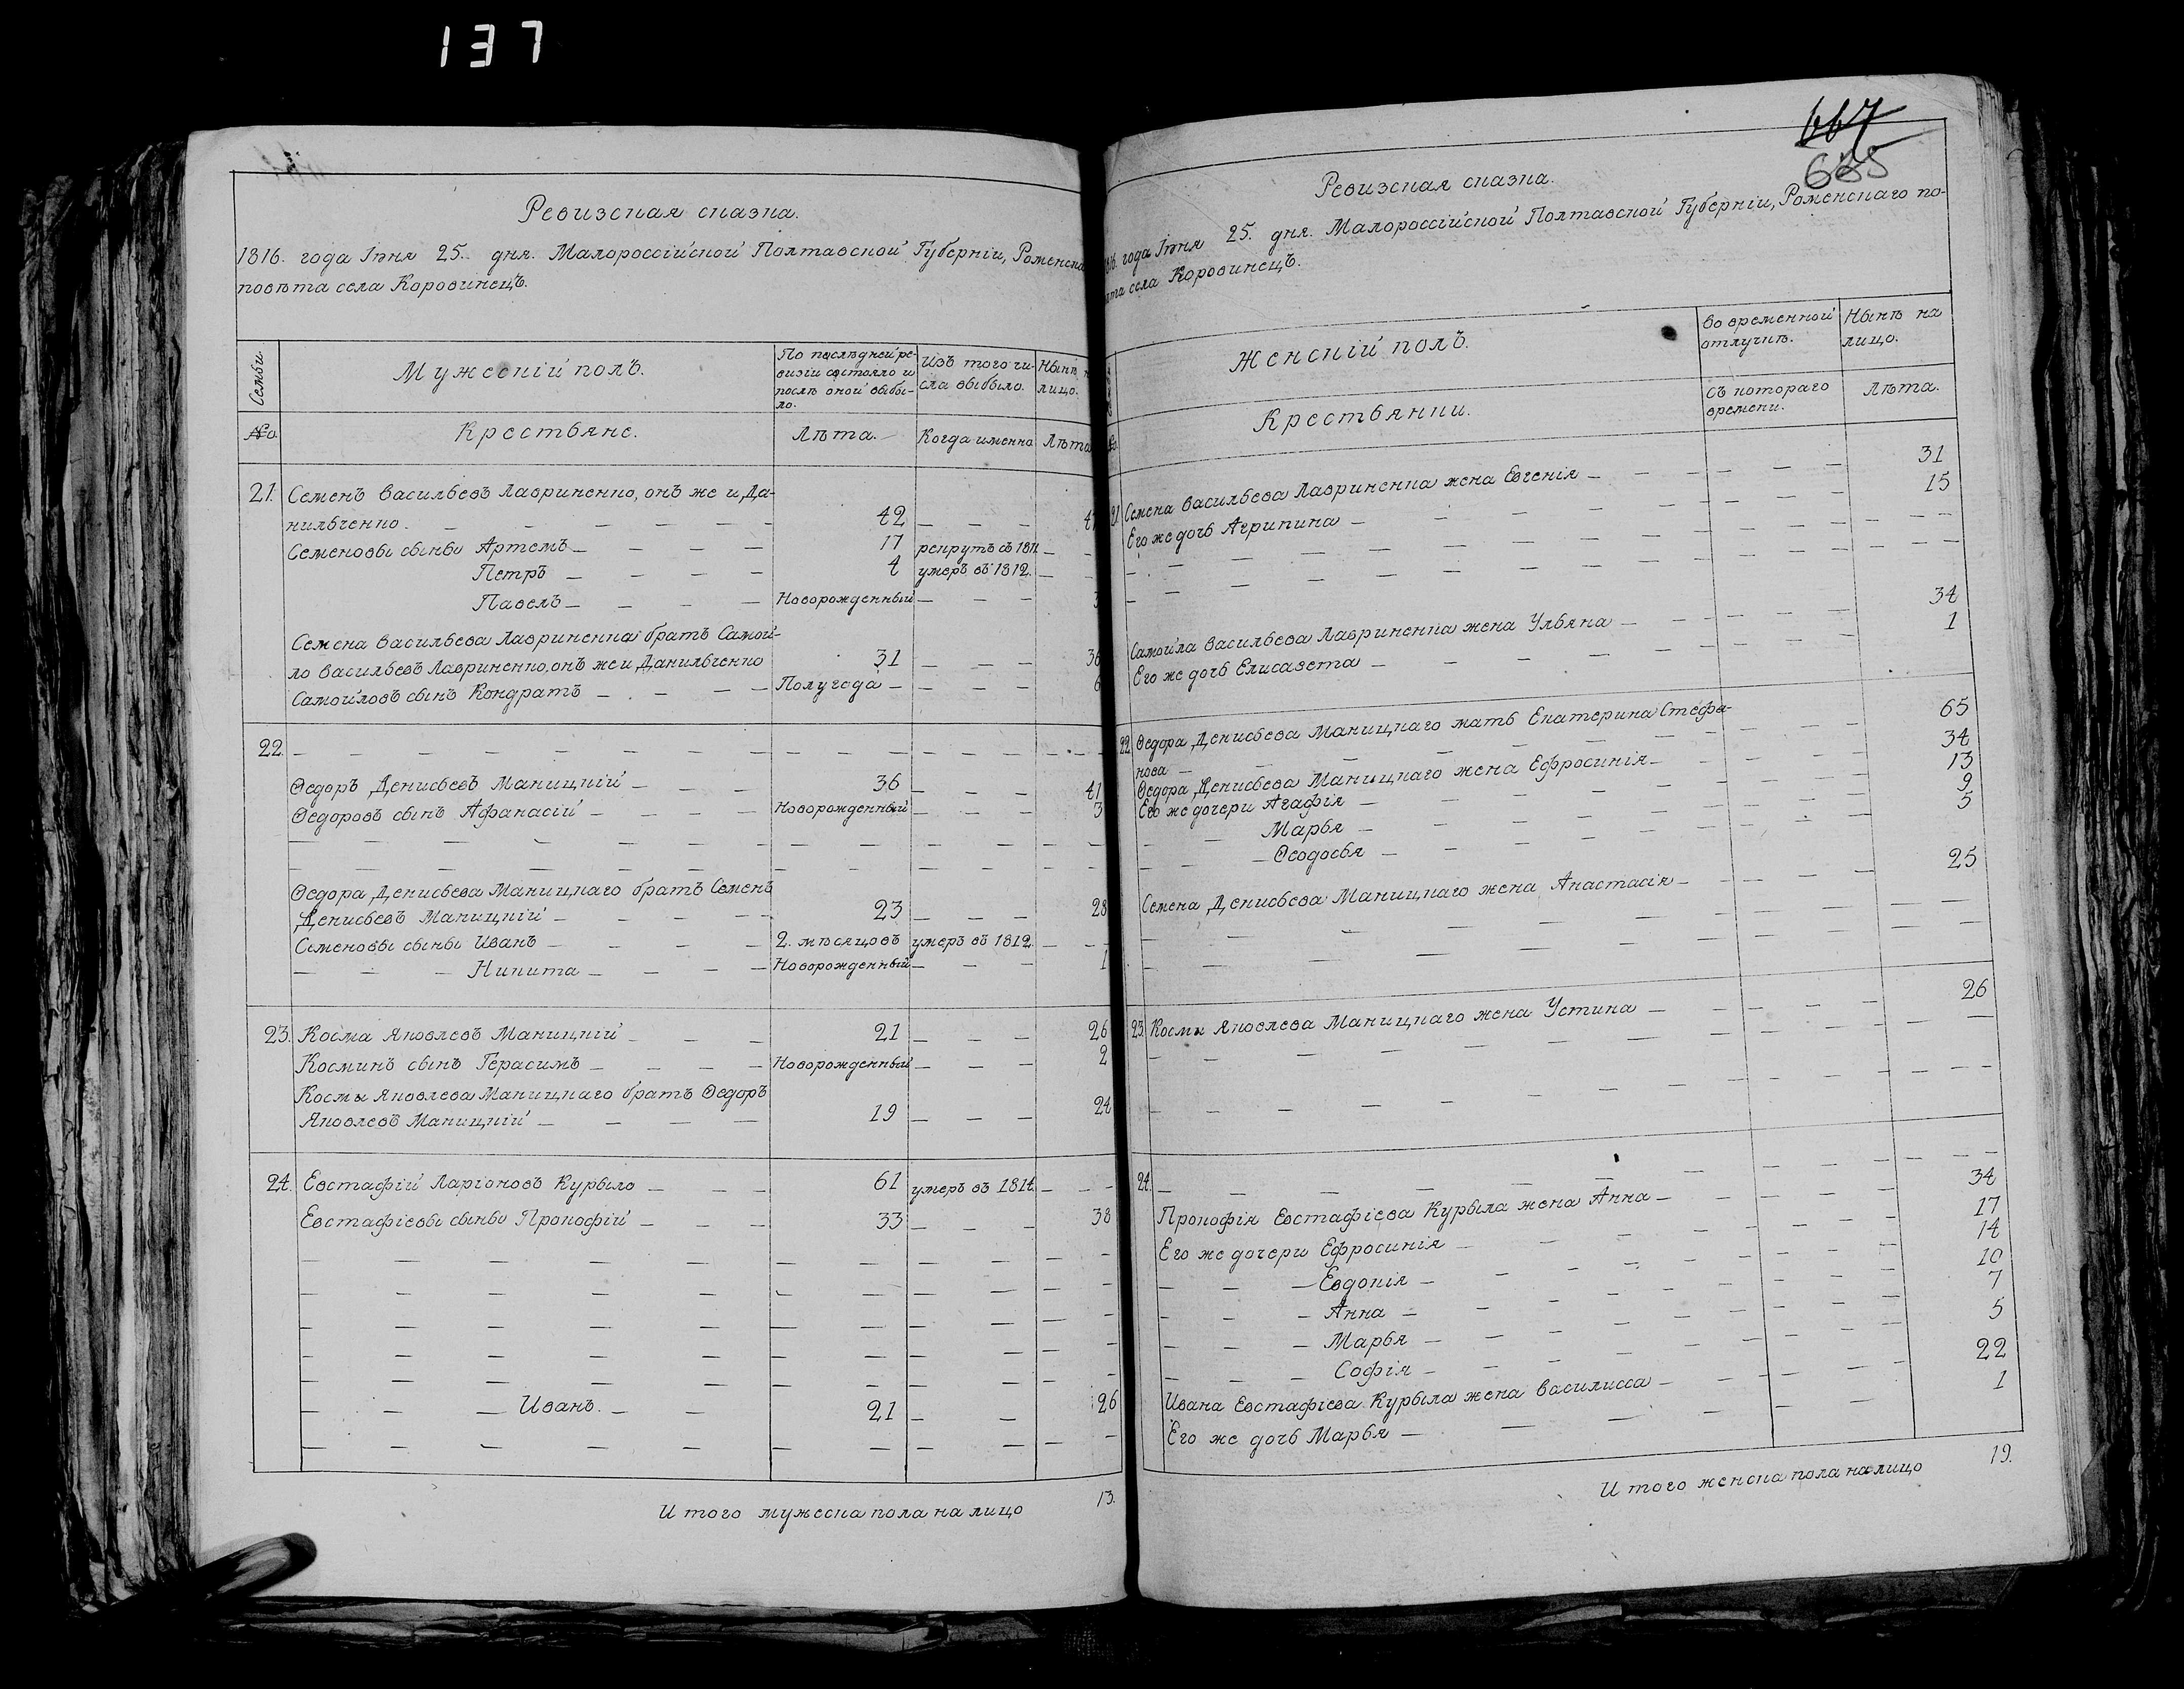 137
Ревизская сказка.
1816. года Іюня 25. дня. Малороссійской Полтавской Губерніи, Роменска
повѣта села Коровинецъ.
Семьи.
Мужескій полъ.
По послѣдней ре-
визіи состояло и
послѣ оной выбы-
ло.
Изъ того чи-
сла выбыло.
Нынѣ н
лицо.
№
Крестьяне.
Лѣта.
Когда именно
Лѣта
21. Семенъ Васильевъ Лавриненко, онъ же и Да-
нильченко. — 42 — 47
Семеновы сыны Артемъ — 17 рекрутъ въ 1811. —
Петръ — 4 умеръ въ 1812. —
Павелъ — Новорожденный — 3
Семена Васильева Лавриненка братъ Самой-
ло Васильевъ Лавриненко, онъ же и Данильченко 31 — 36
Самойловъ сынъ Кондратъ — Полугода — 6
22. —
Ѳедоръ Денисьевъ Маницкій — 36 — 41
Ѳедоровъ сынъ Афанасій — Новорожденный — 3
Ѳедора Денисьева Маницкаго братъ Семенъ
Денисьевъ Маницкій — 23 — 28
Семеновы сыны Иванъ — 2. мѣсяцовъ умеръ въ 1812. —
— Никита — Новорожденный — 1
23. Косма Яковлевъ Маницкій — 21 — 26
Косминъ сынъ Герасимъ — Новорожденный — 2
Космы Яковлева Маницкаго братъ Ѳедоръ
Яковлевъ Маницкій — 19 — 24
24. Евстафій Ларіоновъ Курыло — 61 умеръ въ 1814. —
Евстафіевы сыны Прокофій — 33 — 38
— Иванъ. — 21 — 26
Итого мужеска пола на лицо 13.
667
685
Ревизская сказка.
1816. года Іюня 25. дня. Малороссійской Полтавской Губерніи, Роменскаго по-
вѣта села Коровинецъ.
Женскій полъ.
Во временной
отлучкѣ.
Нынѣ на
лицо.
№
Крестьянки.
Съ котораго
времени.
Лѣта.
21 Семена Васильева Лавриненка жена Евгенія — 31
Его же дочь Агрипина — 15
Самойла Васильева Лавриненка жена Ульяна — 34
Его же дочь Елисавета — 1
22. Ѳедора Денисьева Маницкаго мать Екатерина Стефа-
нова — 65
Ѳедора Денисьева Маницкаго жена Ефросинія — 34
Его же дочери Агафія — 13
Марья — 9
— Ѳеодосья — 5
Семена Денисьева Маницкаго жена Анастасія — 25
23. Космы Яковлева Маницкаго жена Устина — 26
24. —
Прокофія Евстафіева Курыла жена Анна — 34
Его же дочери Ефросинія — 17
— Евдокія — 14
— Анна — 10
— Марья — 7
— Софія — 5
Ивана Евстафіева Курыла жена Василисса — 22
Его же дочь Марья — 1
Итого женска пола на лицо 19.